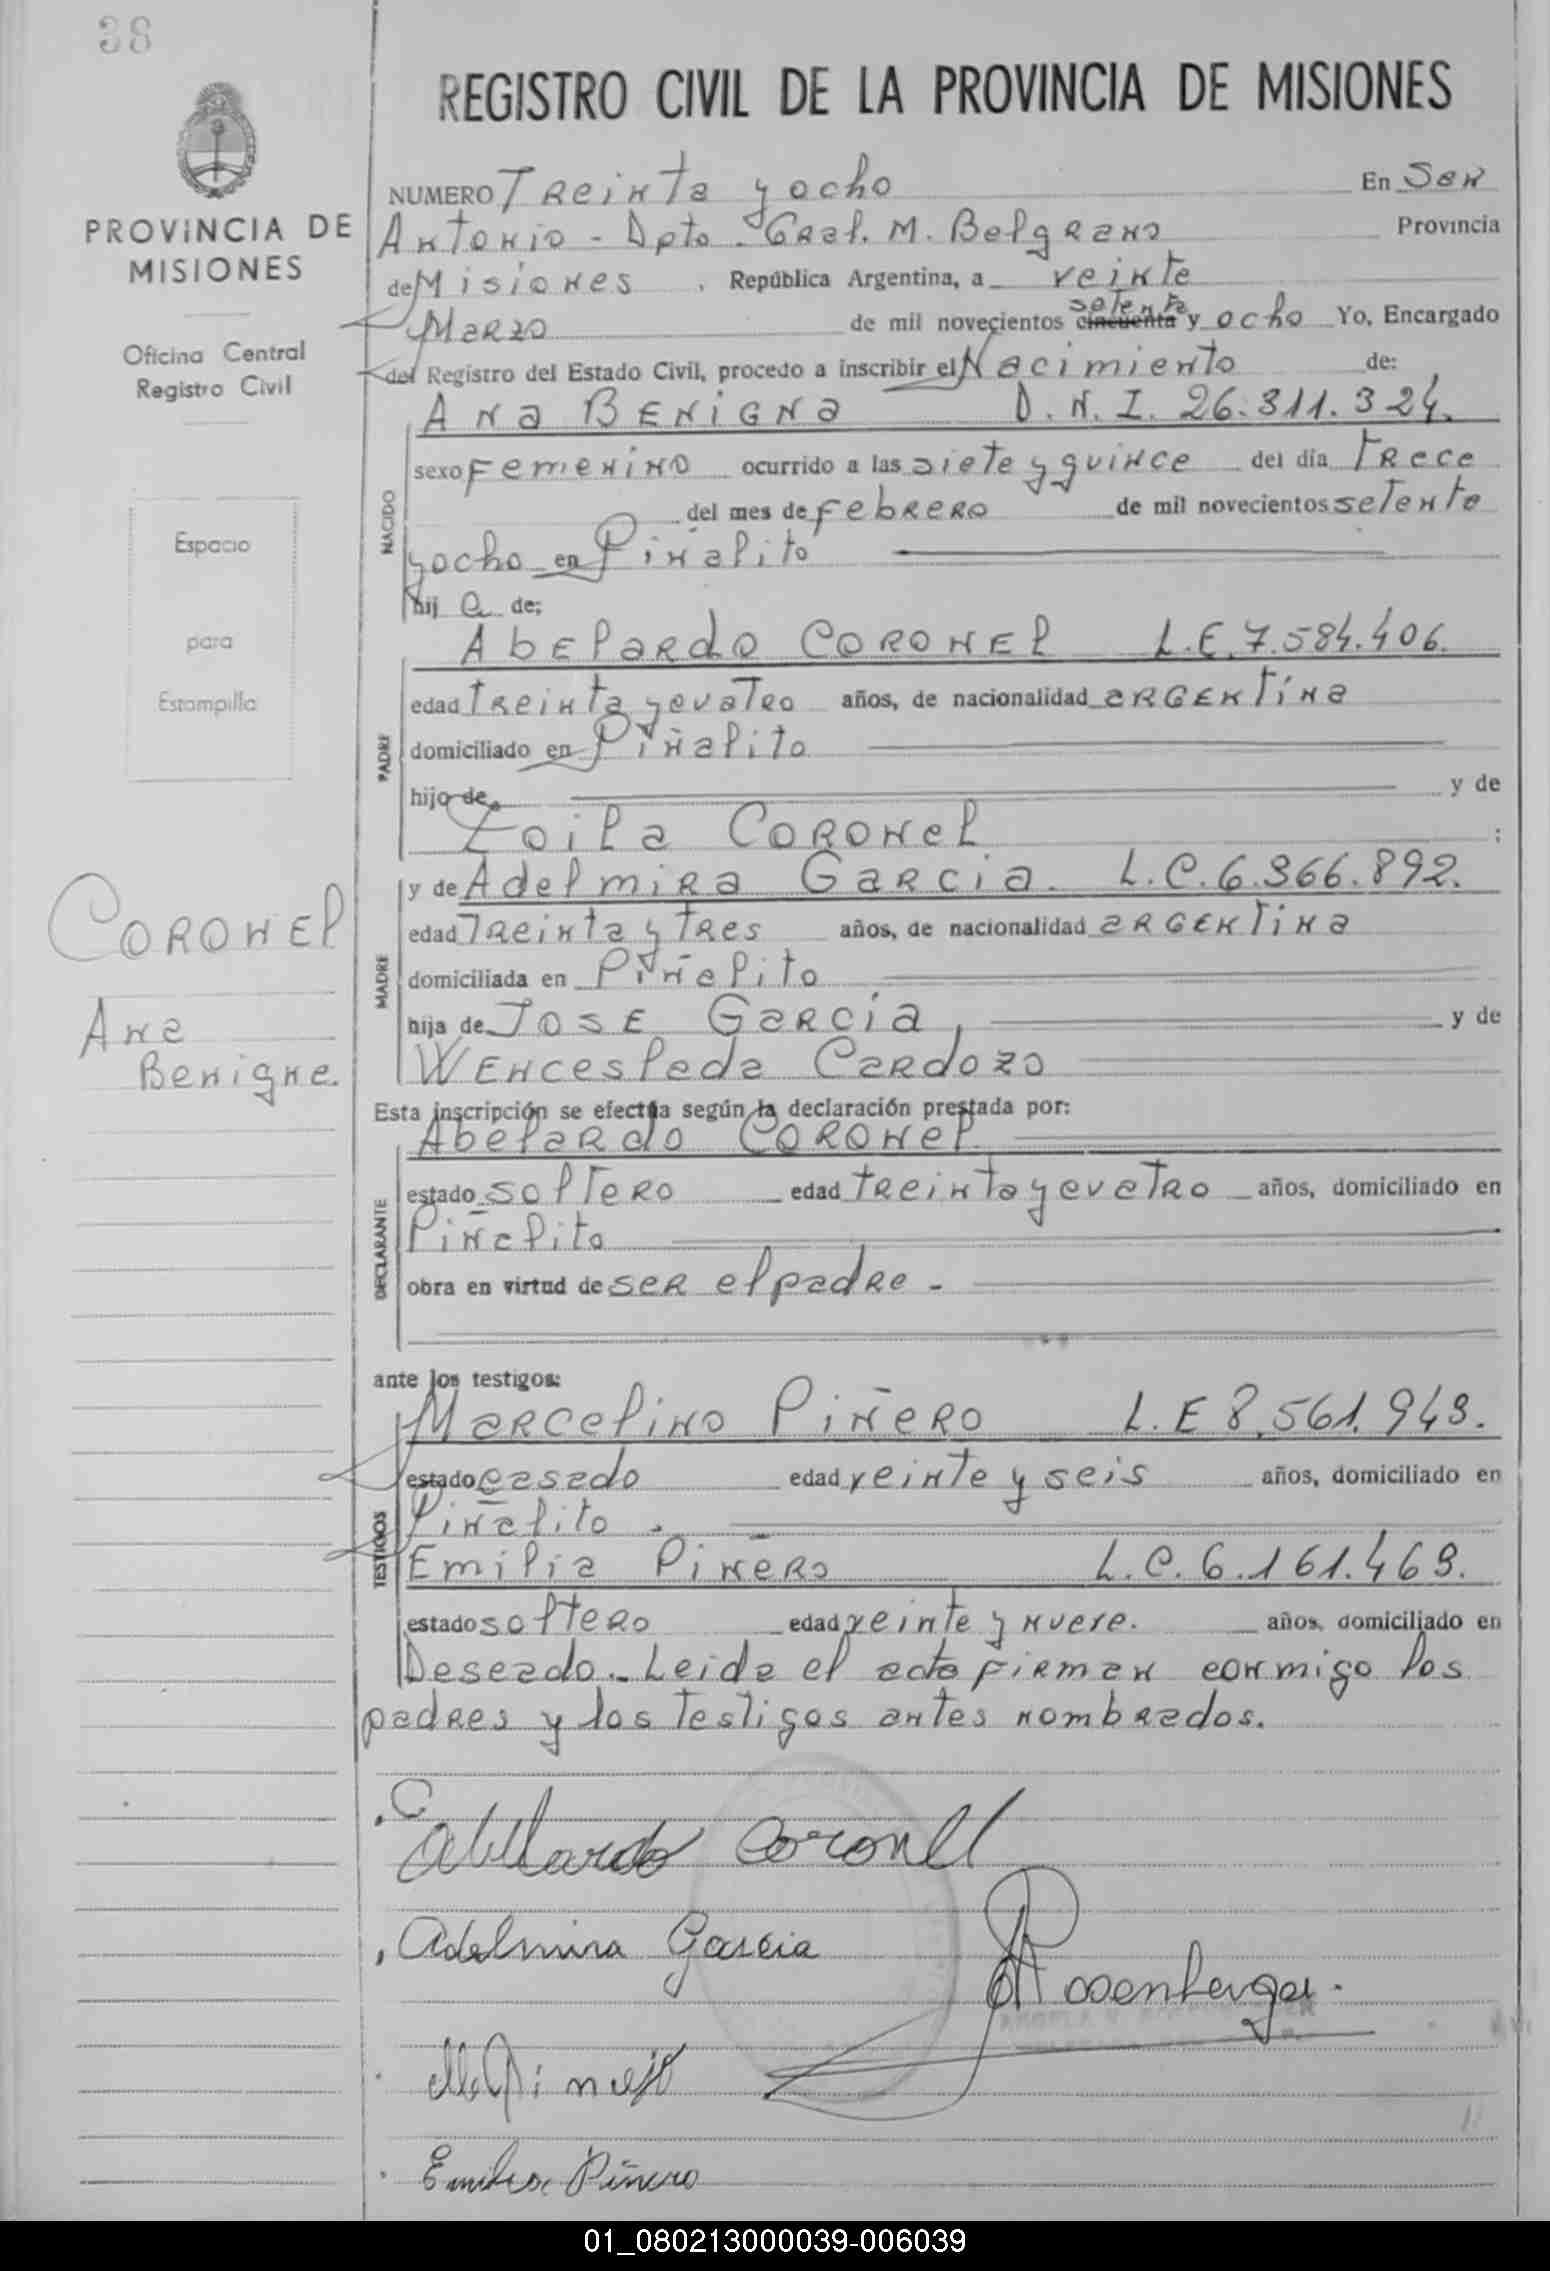 38
PROVINCIA DE
MISIONES
Oficina Central
Registro Civil
Espacio
para
Estampilla
CORONEL
Ana
Benigna.
REGISTRO CIVIL DE LA PROVINCIA DE MISIONES
NUMERO Treinta y ocho En San
Antonio - Dpto. Gral. M. Belgrano Provincia
de Misiones, República Argentina, a veinte
setenta
Marzo de mil novecientos cincuenta y ocho Yo, Encargado
del Registro del Estado Civil, procedo a inscribir el Nacimiento de:
ANA BENIGNA D.N.I. 26.311.324.
NACIDO
sexo femenino ocurrido a las siete y quince del día trece
del mes de febrero de mil novecientos setenta
y ocho en Piñalito
hij a de:
PADRE
Abelardo CORONEL L.E. 7.584.406.
edad treinta y cuatro años, de nacionalidad argentina
domiciliado en Piñalito
hijo de y de
Zoila CORONEL :
MADRE
y de Adelmira Garcia. L.C. 6.366.892.
edad treinta y tres años, de nacionalidad argentina
domiciliada en Piñalito
hija de Jose García, y de
Wenceslada Cardozo
Esta inscripción se efectúa según la declaración prestada por:
DECLARANTE
Abelardo CORONEL
estado soltero edad treinta y cuatro años, domiciliado en
Piñalito
obra en virtud de ser el padre -
ante los testigos:
TESTIGOS
Marcelino Piñero L.E 8.561.943.
estado casado edad veinte y seis años, domiciliado en
Piñalito.
Emilia Piñero L.C. 6.161.469.
estado soltero edad veinte y nueve. años, domiciliado en
Deseado.- Leida el acta firman conmigo los
padres y los testigos antes nombrados.
Abelardo Coronel
Adelmira Garcia
Rosenberger.
M. Piñero
Emilia Piñero
01_080213000039-006039